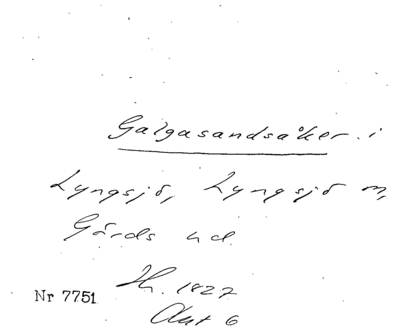 Galgasandsåker i
Lyngsjö, Lyngsjö sn,
Gärds hd.
Sk. 1827
Nr 7751
Akt 6